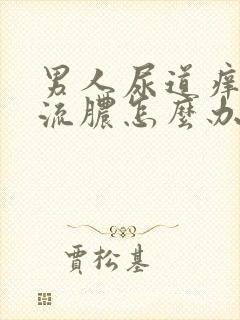 男人尿道痒
流膿怎麼办
賈松基